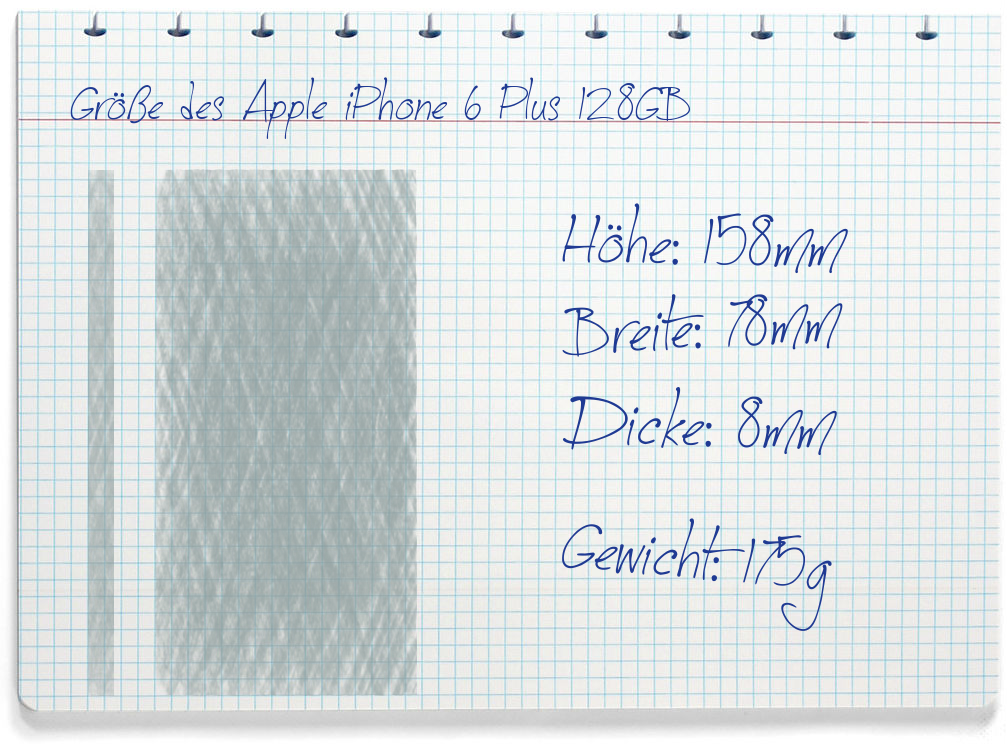 Größe des Apple iPhone 6 Plus 128GB
Höhe: 158mm
Breite: 78mm
Dicke: 8mm
Gewicht: 175g